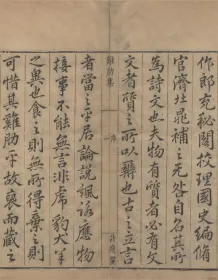 作郎充秘閣校理國史編脩
官濟北晁補之无咎自名其所
為詩文也夫物有質者必有文
文者質之所以辨也古之立言
雞肋集
序
者當之平居論說諷詠應物
接事不能無言非虎豹犬羊
之異也食之則無所得棄之則
可惜其雞肋乎故裒而藏之